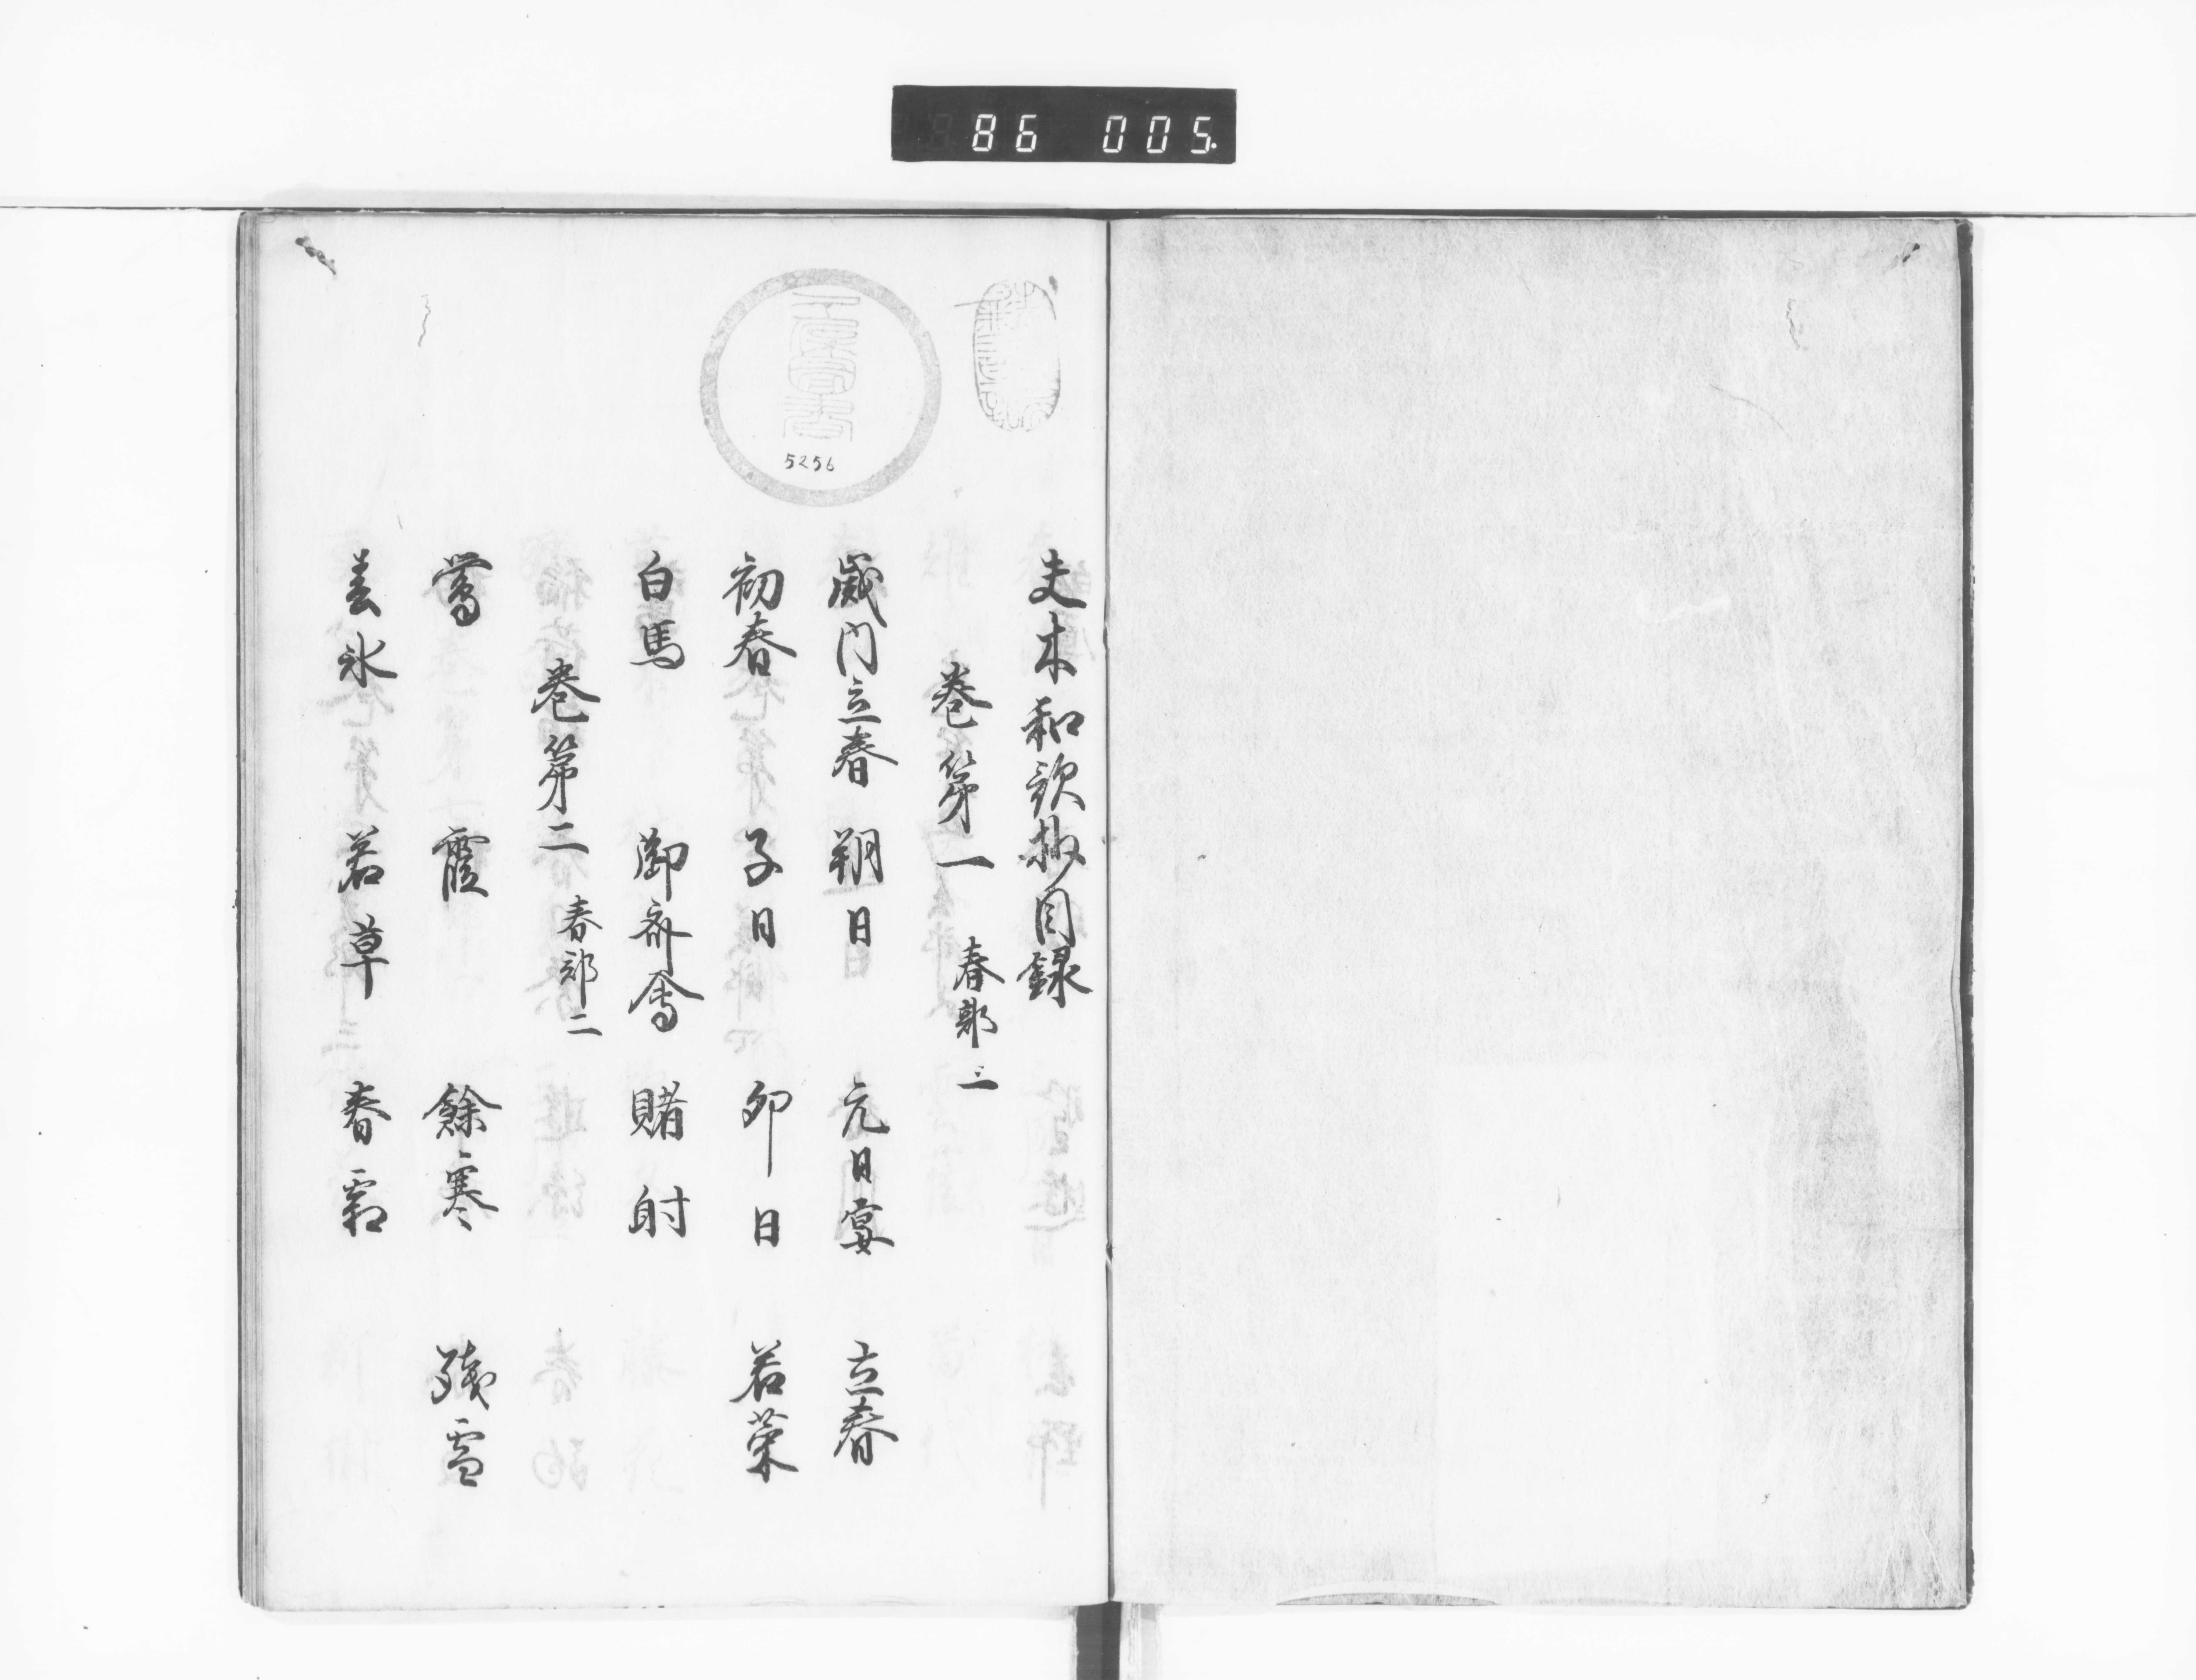 86 005.
夫木和歌抄目録
巻第一 春部一
歳内立春 朔日 元日宴 立春
初春 子日 卯日 若菜
白馬 御斎会 賭射
巻第二 春部二
鶯 霞 餘寒 残雪
春氷 若草 春霜
5256